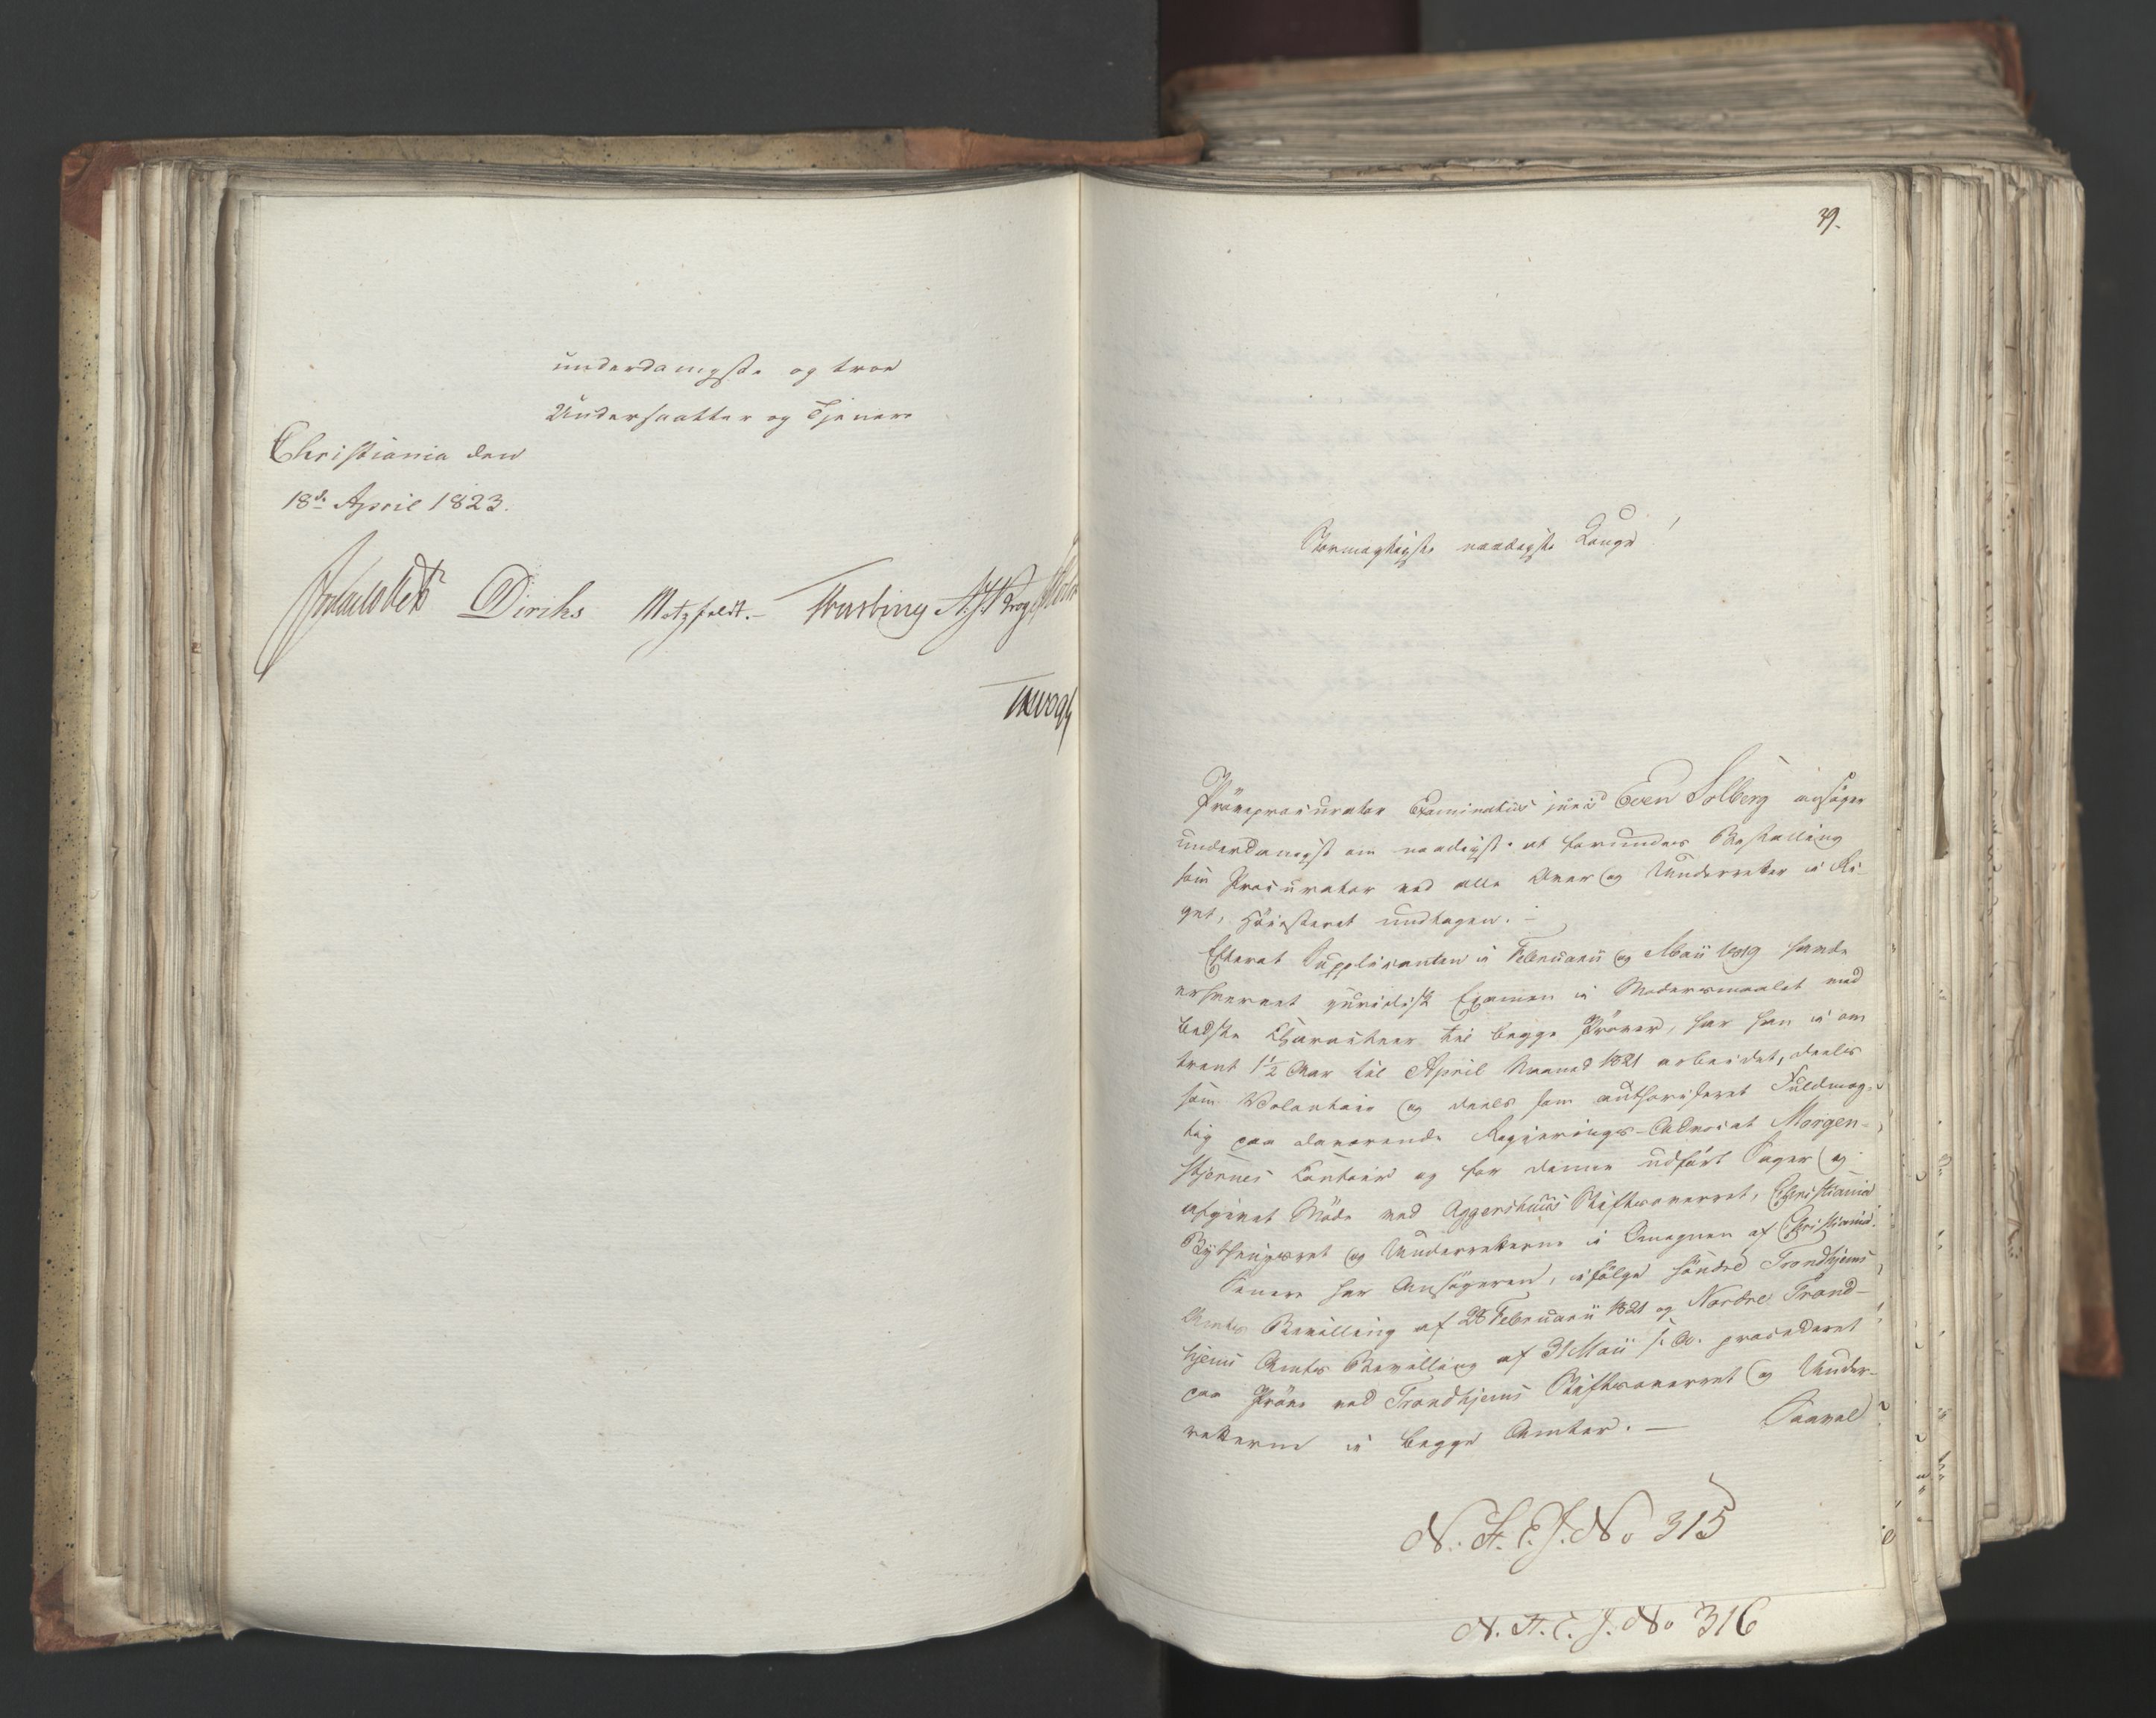 underdanigste og troe
Undersaatter og Tjenere
Christiania den
18de April 1823.
Diriks Motzfeldt.
39.
Stormægtigste naadigste Konge!
Prøveprocurator Examinatus juris Even Solberg ansøger
underdanigst om naadigst at forundes Bestalling
som Procurator ved alle Over og Underretter i Ri-
get, Høiesteret undtagen. -
Efterat Supplicanten i Februarii og Maii 1819 havde
erhvervet juridisk Examen i Modersmaalet med
bedste Charakteer til begge Prøver, har han i om
trent 1½ Aar til April Maaned 1821 arbeidet, deels
som Volontair og deels som authoriseret Fuldmæg-
tig paa daværende Regjerings-Advocat Morgen-
stjernes Contoir og for denne udført Sager og
afgivet Møde ved Aggershuus Stiftsoverret, Christiania
Bytheingsret og Underretterne i Omegnen af Christiania.
Senere har Ansøgeren, ifølge Søndre Trondhjems
Amts Bevilling af 28 Februarii 1821 og Nordre Trond-
hjems Amts Bevilling af 31 Maii s. A. procederet
paa Prøve ved Trondhjems Stiftsoverret og Under-
retterne i begge Amter. — Saavel
N. A. E. J. No 315
N. A. E. J. No 316